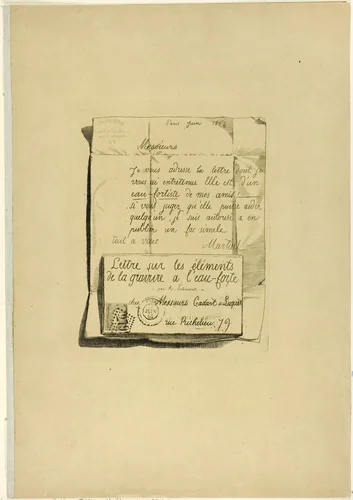 Paris Juin
Messieurs
Je vous adresse la lettre dont je
vous ai entretenue Elle est d'un
eau-fortiste de mes amis,
si vous jugez qu'elle puisse aider
quelqu'un je suis autorisé a en
publier un fac simile
tout a vous
Martial
Lettre sur les éléments
de la gravure a l'eau-forte
chez Messieurs Cadart et Luquet
rue Richelieu 79